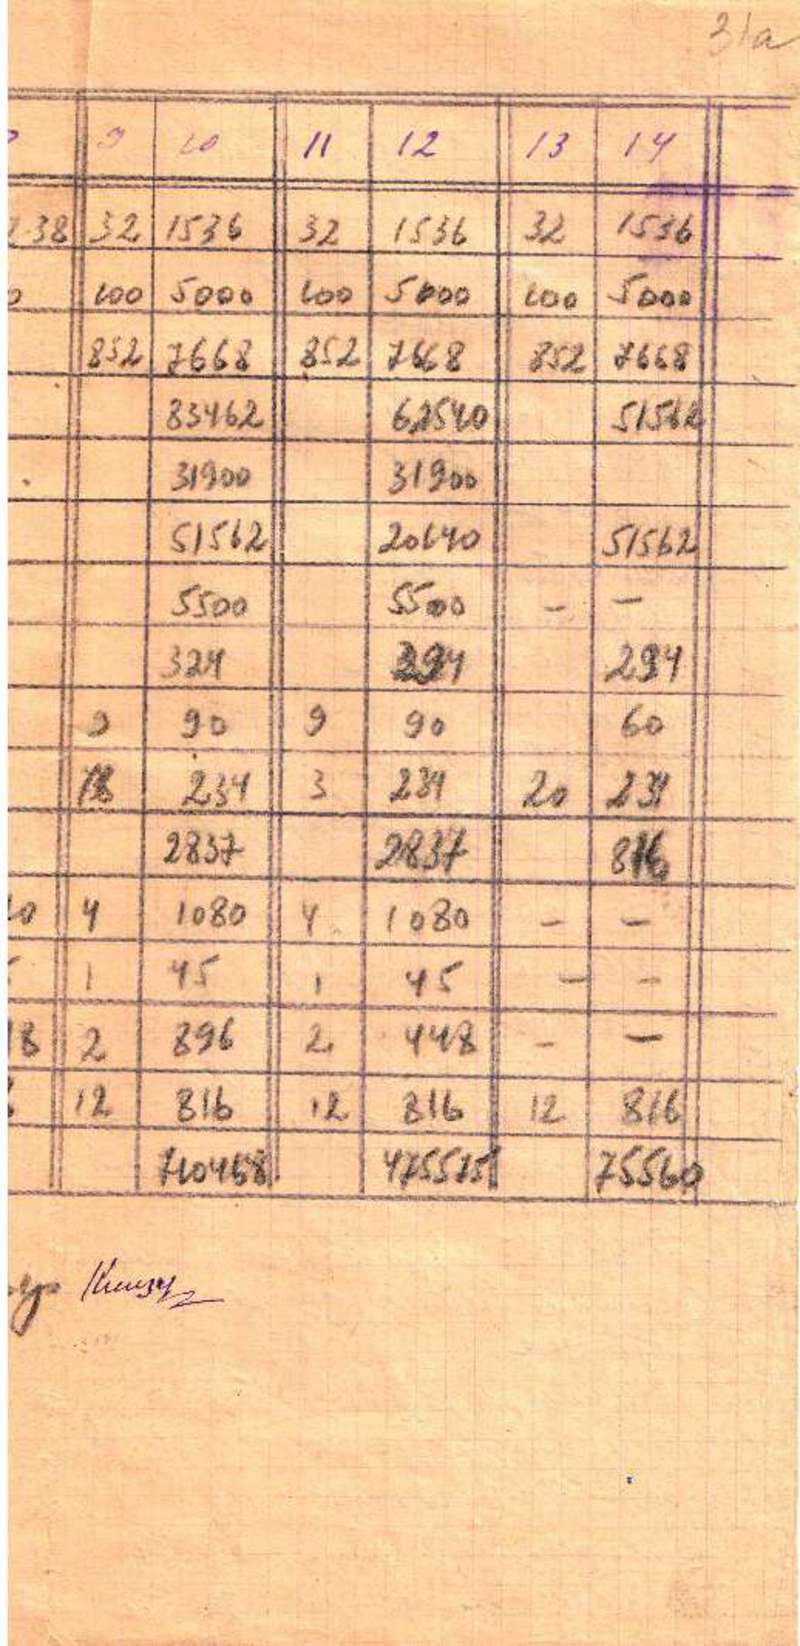 31а
9 10 11 12 13 14
38 32 1536 32 1536 32 1536
0 100 5000 100 5000 100 5000
852 7668 852 7668 852 7668
83462 62540 51562
31900 31900
51562 20640 51562
5500 5500 – –
324 294 294
9 90 9 90 60
18 234 3 234 20 234
2837 2837 816
0 4 1080 4 1080 – –
1 45 1 45 – –
18 2 896 2 448 – –
12 816 12 816 12 816
75560